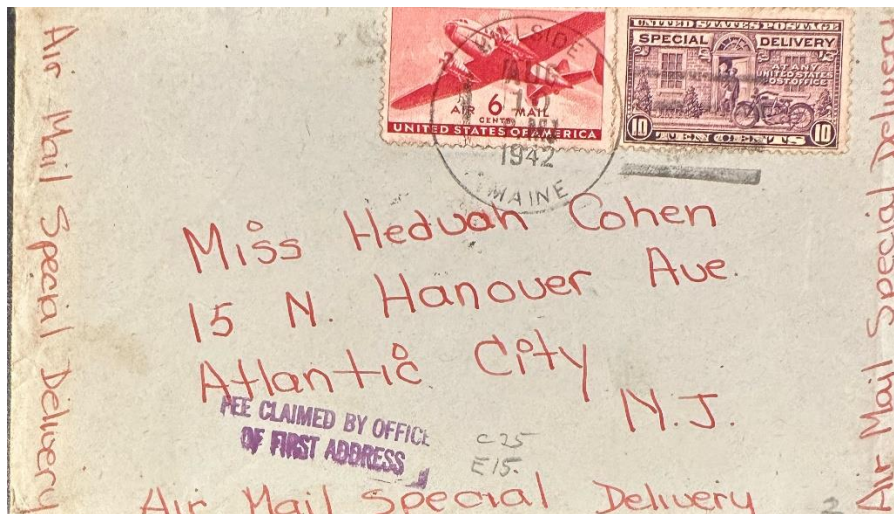 Air Mail Special Delivery
AIR 6 MAIL
CENTS
UNITED STATES OF AMERICA
UNITED STATES POSTAGE
SPECIAL DELIVERY
AT ANY
UNITED STATES
POST OFFICE
10 TEN CENTS 10
AUG
1942
MAINE
Miss Heduah Cohen
15 N. Hanover Ave.
Atlantic City
N.J.
FEE CLAIMED BY OFFICE
OF FIRST ADDRESS
C25
E15.
Air Mail Special Delivery
2
Air Mail Special Delivery